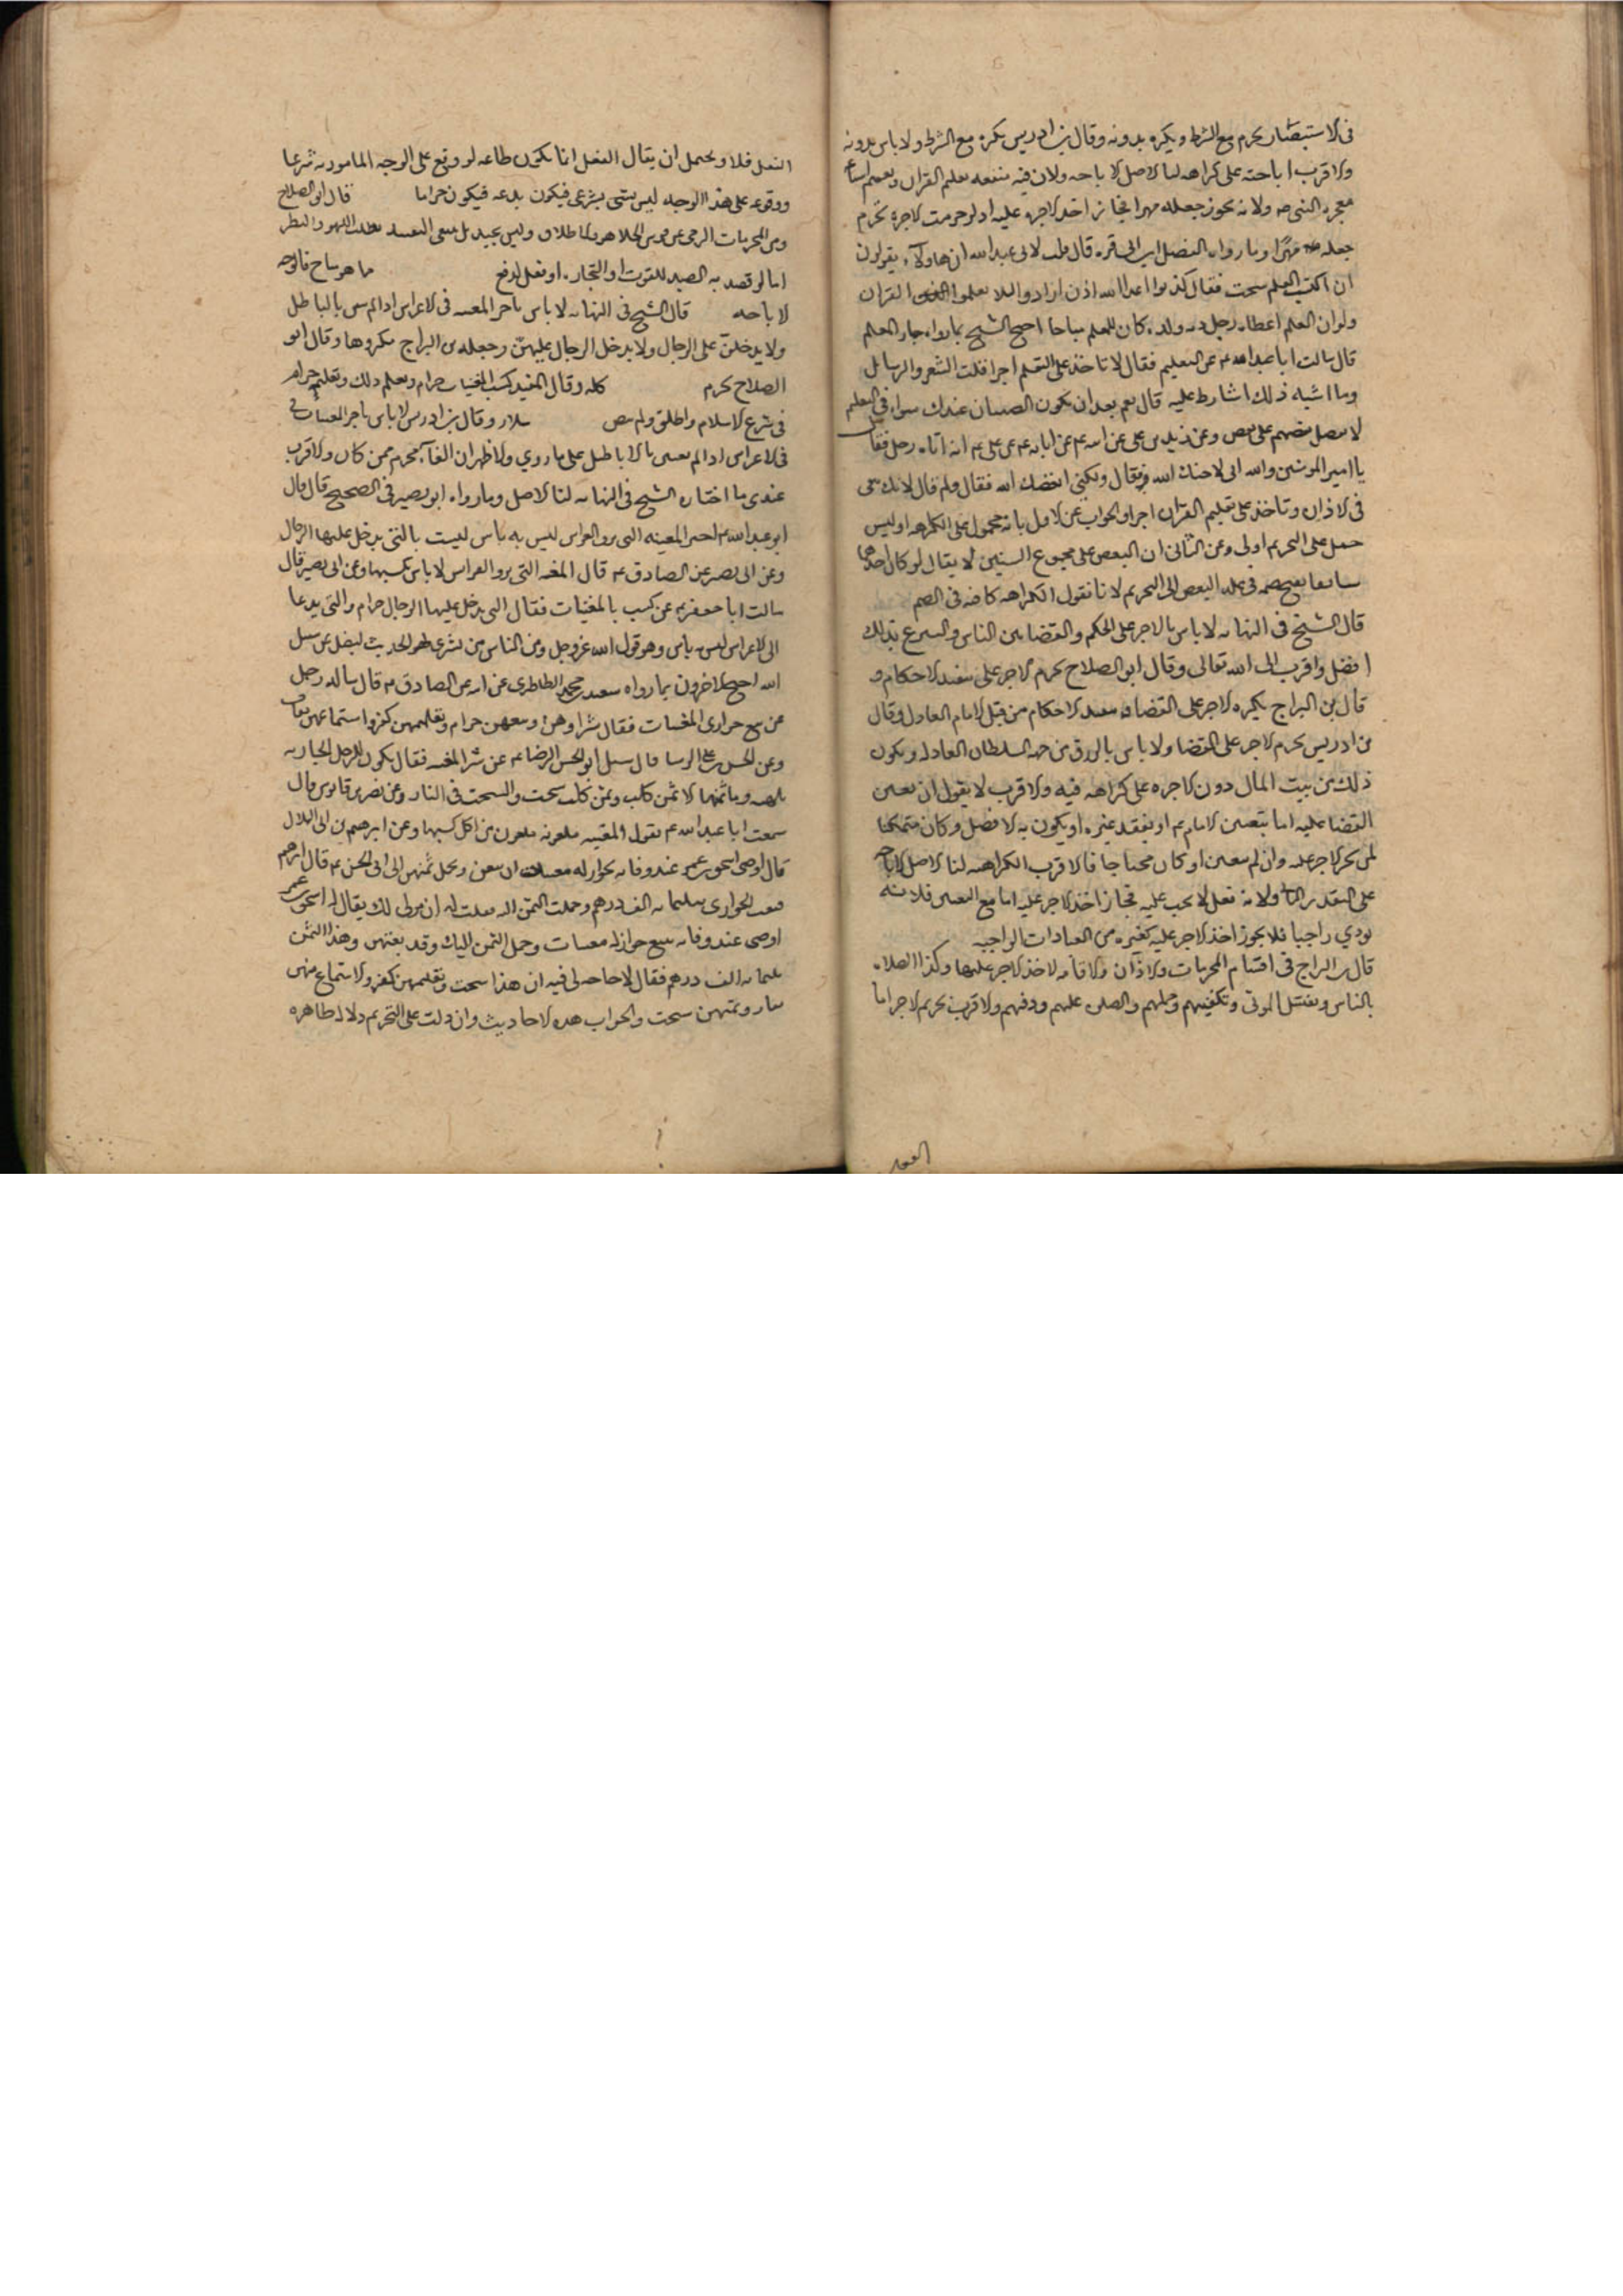 في الاستبصار يحرم مع الشرط ويكره بدونه وقال بن ادريس يكره مع الشرط ولا باس بدونه
والاقرب اباحته على كراهه لنا الاصل الاباحه ولان فيه منفعه تعلم القران
معجزه النبي ص ولانه يجوز جعله مهرا فجاز اخذ الاجره عليه اذ لو حرمت الاجره لحرم
جعله مهرا وما رواه الفضل ابن ابي قره قال قلت لابي عبد الله ان هاولاء يقولون
ان اكتب المعلم سحت فقال كذبوا اعدا الله اذن ارادوا ان لا يعلموا القران
ولو ان المعلم اعطاه رجل ديه ولده كان للمعلم مباحا احتج الشيخ بما رواه
قال سالت ابا عبد الله عم عن التعليم فقال لا تاخذ على التعليم اجرا قلت الشعر والرسائل
وما اشبه ذلك اشارط عليه قال نعم بعد ان يكون الصبيان عندك سواء في التعليم
لا تفضل بعضهم على بعض وعن زيد بن علي عن ابيه عن ابائه عم عن علي عم انه اتاه رجل فقال
يا امير المومنين والله اني لاحبك لله فقال ولكني ابغضك لله فقال ولم قال لانك تبغي
في الاذان وتاخذ على تعليم القران اجرا والجواب عن الاول بانه محمول على الكراهه اوليس
حمل على التحريم اولى وعن الثاني ان البغض على مجموع الشيئين لا يقال لو كان احدهما
سائغا في البغض الى التحريم لانا نقول الكراهه كافيه في الضم
قال الشيخ في النهايه لا باس بالاجر على الحكم والقضا بين الناس والتبرع بذلك
افضل واقرب الى الله تعالى وقال ابو الصلاح يحرم الاجر على تنفيذ الاحكام و
قال بن البراج يكره الاجر على القضا وتنفيذ الاحكام من قبل الامام العادل وقال
بن ادريس يحرم الاجر على القضا ولا باس بالرزق من جهه السلطان العادل ويكون
ذلك من بيت المال دون الاجره على كراهه فيه والاقرب ان نقول ان تعين
القضا عليه اما بتعيين الامام عم او بفقد غيره او بكونه الافضل وكان متمكنا
لم يجز الاجر عليه وان لم يتعين او كان محتاجا فالاقرب الكراهه لنا الاصل الاباحه
على التقدير الثاني ولانه فعل لا يجب عليه فجاز اخذ الاجر عليه اما مع التعيين فلانه
يودي واجبا فلا يجوز اخذ الاجر عليه كغيره من العبادات الواجبه
قال بن البراج في اقسام المحرمات والاذان والاقامه لاخذ الاجر عليها وكذا الصلاه
بالناس وتغسيل الموتى وتكفينهم وحملهم والصلوه عليهم ودفنهم والاقرب تحريم الاجر اما
الفعل فلا ويحتمل ان يقال الفعل انما يكون طاعه لو وقع على الوجه المامور به شرعا
ووقوعه على هذا الوجه ليس بشي شرعي فيكون بدعه فيكون حراما قال ابو الصلاح
ومن المحرمات الرمي عن قوس الجلاهق بالاطلاق وليس بجيد بل ينبغي التقييد بطلب اللهو والبطر
اما لو قصد به الصيد للقوت او التجاره او فعل لدفع ما هو مباح فالوجه
الاباحه قال الشيخ في النهايه لا باس باجر المغنيه في الاعراس اذا لم يغنين بالباطل
ولا يدخلن على الرجال ولا يدخل الرجال عليهن وجعله بن البراج مكروها وقال ابو
الصلاح يحرم كله وقال المفيد كسب المغنيات حرام وتعلم ذلك وتعليمه حرام
في شرع الاسلام واطلق ولم يفصل سلار وقال بن ادريس لا باس باجر المغنيات
في الاعراس اذا لم يغنين بالاباطيل على ما روي والاظهر ان الغناء محرم ممن كان والاقرب
عندي ما اختاره الشيخ في النهايه لنا الاصل وما رواه ابو بصير في الصحيح قال قال
ابو عبد الله عم اجر المغنيه التي تزف العرايس ليس به باس ليست بالتي يدخل عليها الرجال
وعن ابي بصير عن الصادق عم قال المغنيه التي تزف العرايس لا باس بكسبها وعن ابي بصير قال
سالت ابا جعفر عم عن كسب المغنيات فقال التي يدخل عليها الرجال حرام والتي تدعا
الى الاعراس ليس به باس وهو قول الله عز وجل ومن الناس من يشتري لهو الحديث ليضل عن سبيل
الله احتج الاخرون بما رواه سعيد بن محمد الطاطري عن ابيه عن الصادق عم قال ساله رجل
عن بيع جواري المغنيات فقال شراوهن وبيعهن حرام وتعليمهن كفر واستماعهن نفاق
وعن الحسن بن علي الوشا قال سئل ابو الحسن الرضا عم عن شرا المغنيه فقال يكون للرجل الجاريه
تلهيه وما ثمنها الا ثمن كلب وثمن كلب سحت والسحت في النار وعن نصر بن قابوس قال
سمعت ابا عبد الله عم يقول المغنيه ملعونه ملعون من اكل كسبها وعن ابرهيم بن ابي البلاد
قال اوصى اسحق بن عمر عند وفاته بجوار له مغنيات ان يبعن ويحمل ثمنهن الى ابي الحسن عم قال ابرهيم
فبعت الجواري بثلثمايه الف درهم وحملت الثمن اليه فقلت له ان مولى لك يقال له اسحق بن عمر
اوصى عند وفاته ببيع جوار له مغنيات وحمل الثمن اليك وقد بعتهن وهذا الثمن
ثلثمايه الف درهم فقال لا حاجه لي فيه ان هذا سحت وتعليمهن كفر والاستماع منهن
نفاق وثمنهن سحت والجواب هذه الاحاديث وان دلت على التحريم دلاله ظاهره